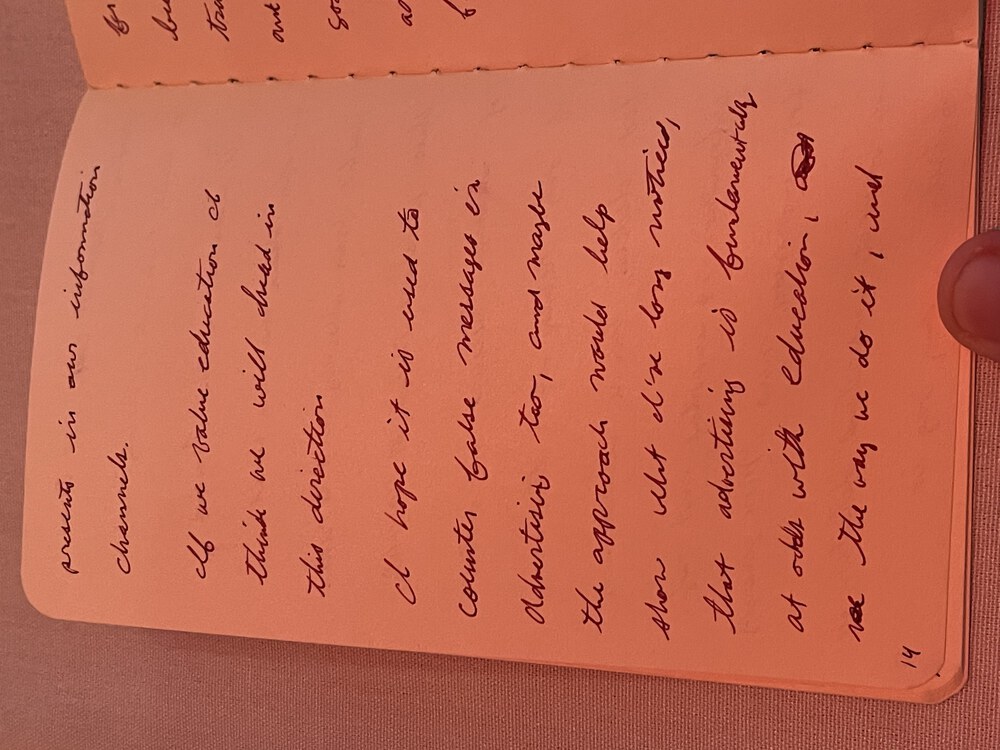 presents in our information
channels.
If we value education I
think we will head in
this direction
I hope it is used to
counter false messages in
Advertising too, and maybe
the approach would help
show what I've long noticed,
that advertising is fundamentally
at odds with education,
the way we do it, and
14